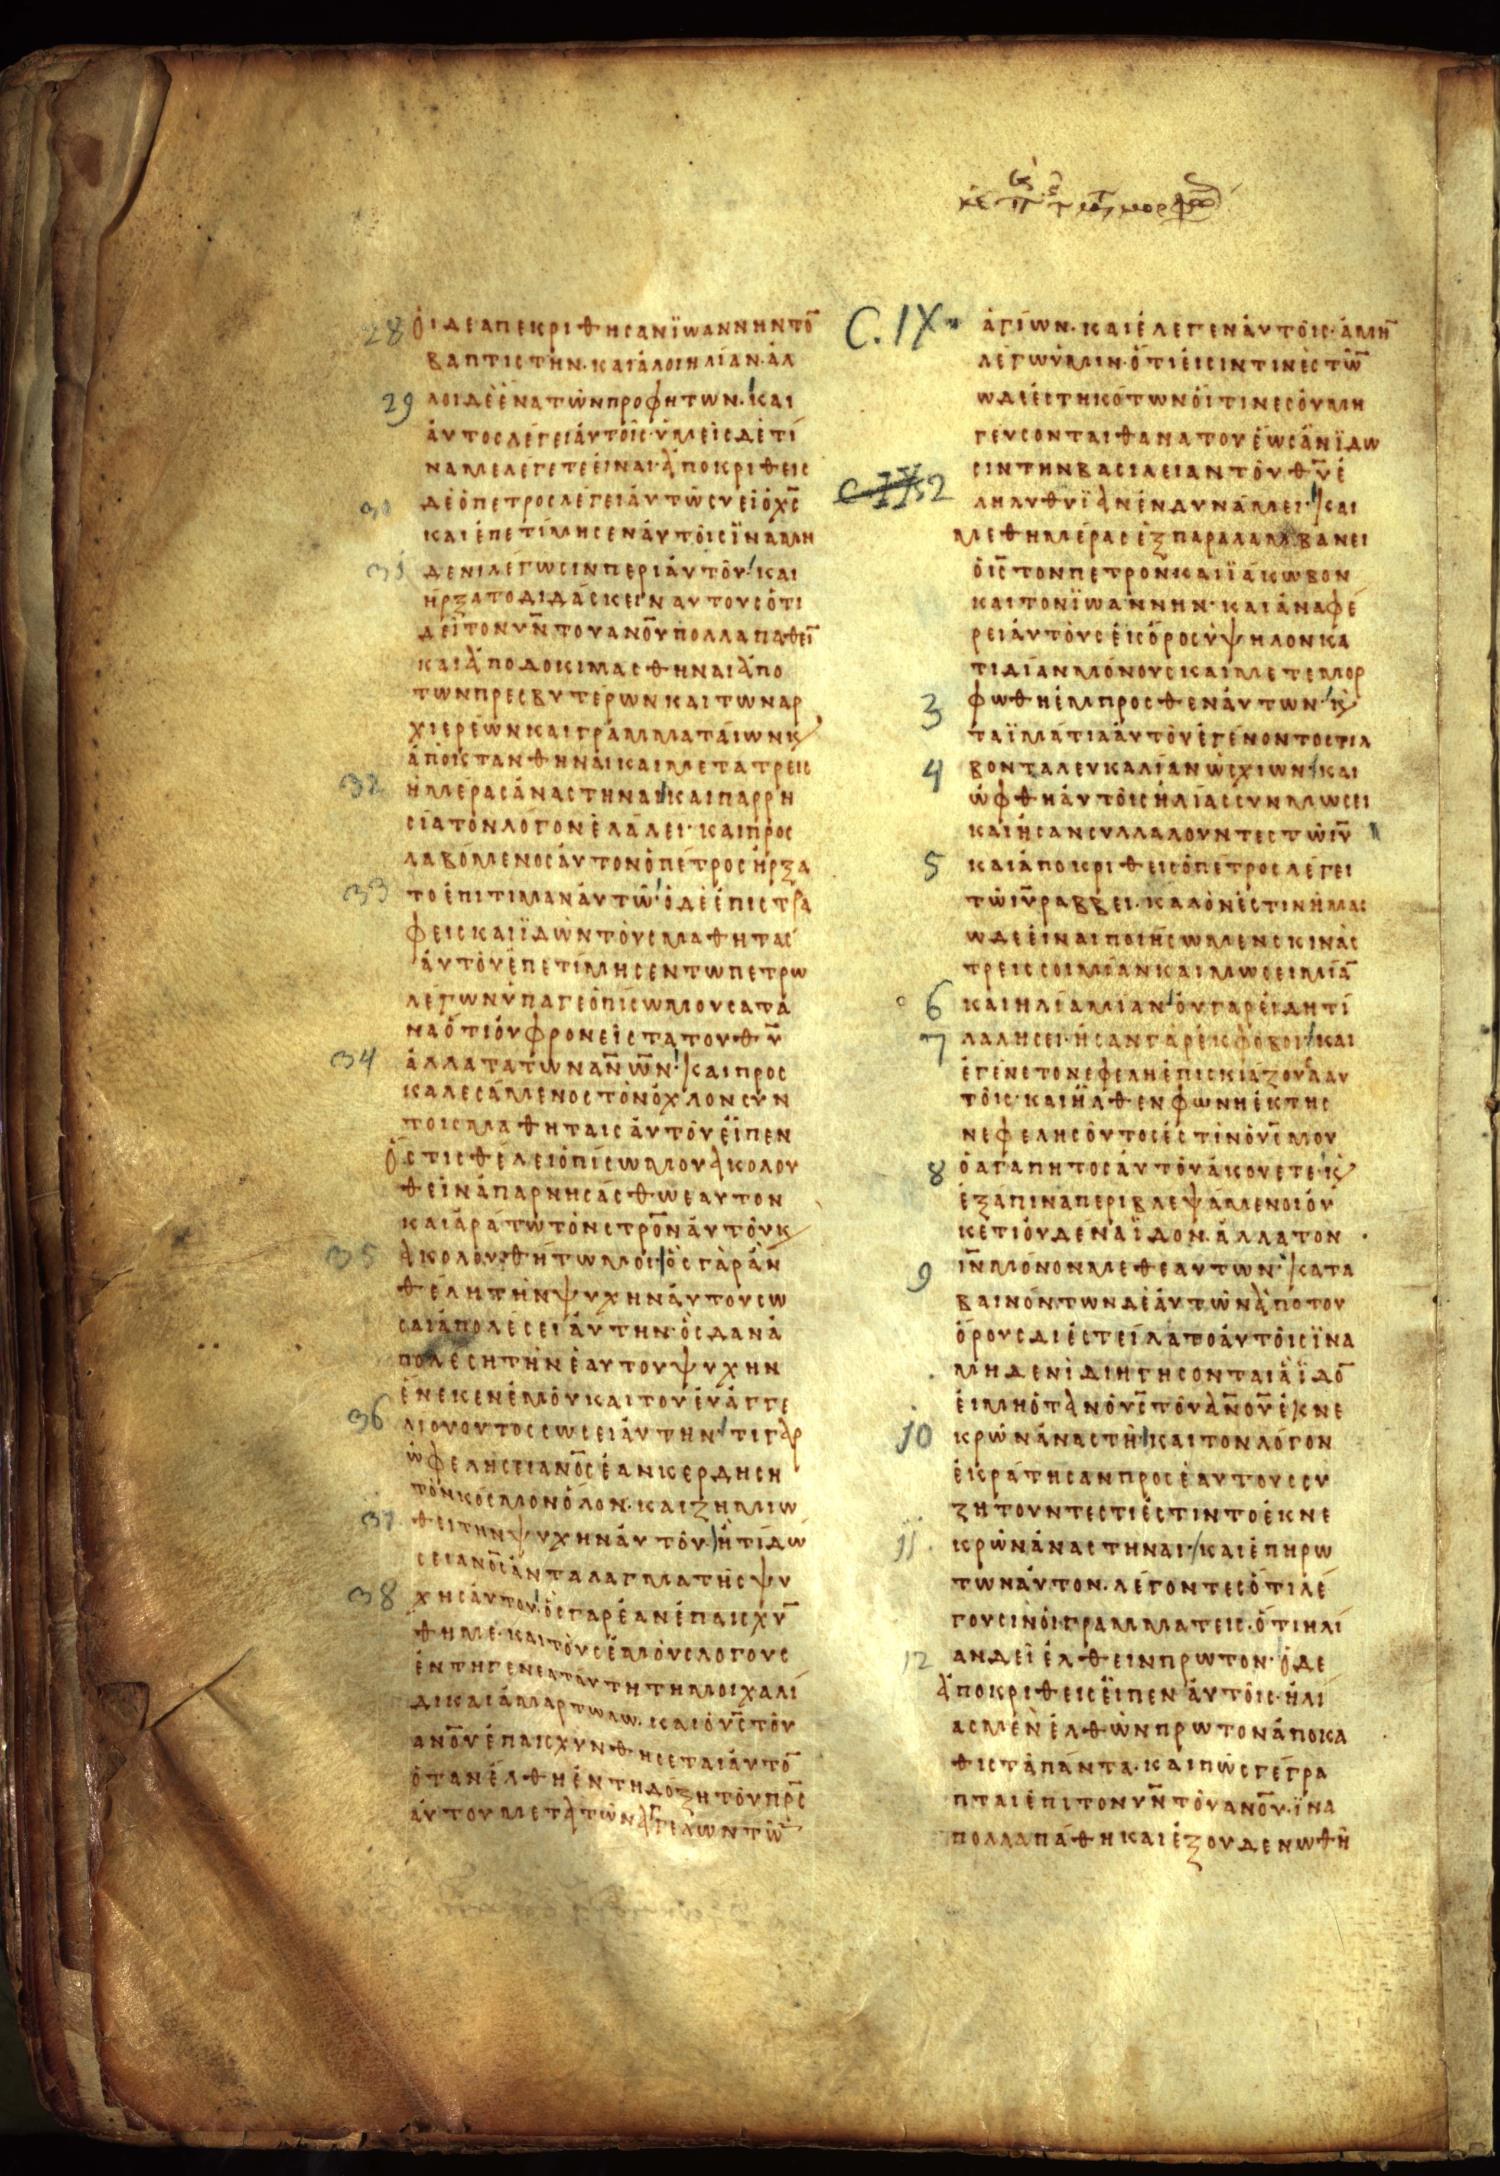 28 ὁιδεαπεκριθησανϊωαννηντο̅
βαπτιστὴν·καιἀλοιηλίαν·ἀλ
29 λοιδὲἑνατὼνπροφητων·καὶ
ἀυτοσλέγειἀυτοῖς·ὑμεὶςδὲτί
ναμελέγετεἐίναι·ἀποκριθεις
30 δὲὁπετροςλεγειἀυτῶσυεἶὁχ̅ς̅
καιἐπετίμησενἀυτοῖςἵναμη
31 δενιλέγωσινπεριἀυτοῦ·και
ἠρξατοδιδάσκεινἀυτουσότι
δεῖτονυ̅ν̅τουα̅νο̅υ̅πολλαπαθεῖ̅
καιἀποδοκιμασθηναιἀπο
τωνπρεσβυτέρωνκαιτωναρ
χιερέωνκαιγράμματάιωνκ̀
ἀποκτανθηνάικαιμετατρεις
32 ἡμέραςἀναστηναι·καιπαρρη
σίατὸνλογονἐλάλει·καιπρος
λαβόμενοςἀυτονὁπέτροςἠρξα
33 τοἐπιτιμανἀυτῶ·ὁδὲἐπιστρα
φεισκαιϊδὼντὸυςμαθητασ
ἀυτὸυἐπετίμησεντωπετρω
λέγωνὑπαγεὀπίσωμουσατά
ναὅτιὀυφρονεῖςτατουθ̅υ̅
34 ἀλλατατωνα̅ν̅ω̅ν̅·καιπρος
καλεσάμενοστὸνὄχλονσὺν
τοισμαθηταιςἀυτὸυἐῖπεν
ὅστισθέλειὀπίσωμουἀκολου
θεῖνἀπαρνησάσθωεαυτον
καιἀράτωτὸνστρο̅νἀυτὸυκ̀
35 ἀκολουθήτωμοι·ὃςγὰρἂν
θέλητὴνψυχηνἀυτουσω
σαιἀπολέσειἀυτην·ὃςδανἀ
πολέσητὴνἑαυτουψυχην
ἕνεκενἐμοῦκαιτουἐυάγγε
36 λιουουτοςσωσειἀυτην·τιγὰρ
ὠφελησειανο̅σἐανκερδηση
τὸνκόσμονὅλον·καιζημιω
37 θειτηνψυχηνἀυτὸυ·ἢτίδώ
σειανο̅σἀνταλαγματῆςψυ
38 χησἀυτου·ὃςγαρἐανἐπαισχυ̅
θημε·καιτὸυσἐμὸυσλογους
ἐντηγενεαταυτητημοιχαλί
δικαιἁμαρτωλω·καιὁυ̅ς̅τὸυ
ανο̅υἐπαισχυνθησεταιἀυτο̅
ὅτανἐλθηἐντηδόξητὸυπ̅ρ̅ς̅
ἀυτουμετὰτῶνἀγγελωντω̅
C.IX. ἁγίων·καιἔλεγενἀυτοῖς·ἀμη̅
λέγωὑμιν·ὅτιἐισιντινὲστω̅
ὧδεἑστηκότωνὅιτινεσὀυμη
γευσονταιθανατουἕωςἂνϊδω
σιντηνβασιλειαντὸυθ̅υ̅ἐ
2 ληλυθυϊἂνἐνδυνάμει·και
μεθημέραςἑξπαραλαμβανει
ὁι̅ς̅τονπετρονκαιϊάκωβον
καιτονϊωαννην·καιἀναφέ
ρειἀυτὸυσἐισὄροσὑψηλονκα
τιδίανμόνουςκαιμετεμορ
3 φωθηἐμπροσθενἀυτων·κ̀
ταϊμάτιαἀυτὸυἐγένοντοστιλ
4 βονταλευκαλίανὡςχιων·και
ὤφθηἀυτοῖςἠλίαςσυνμωσει
καιἠσανσυλλαλουντεστῶι̅υ̅
5 καιἀποκριθεισὁπέτροςλέγει
τῶι̅υ̅ραββει·καλόνἐστινἡμας
ὧδεἐίναιποιησωμενσκινὰς
τρεισσοιμίανκαιμωσειμία̅
6 καιηλίαμίαν·ὀυγαρἐίδητί
7 λαλησει·ἦσανγάρἐκφοβοι·και
ἐγένετονεφεληἐπισκιάζουσααυ
τοῖς·καιἦλθενφωνηἐκτης
νεφελησὁυτοσέστινὁυ̅ς̅μου
8 ὁαγαπητοσἀυτὸυἀκουετε·κ̀
ἐξάπιναπεριβλεψάμενοιὀυ
κέτιὀυδέναϊδον·ἀλλατον
9 ι̅ν̅μόνονμεθεαυτων·κατα
βαινόντωνδὲἀυτῶνἀπότου
ὄρουςδιέστείλατοἀυτοῖςϊνα
μηδενὶδιηγησονταιἃϊδο̅
ἐιμηὅτὰνὁυ̅ς̅τοῦἀ̅νο̅υ̅ἐκνε
10 κρώνἀναστὴ·καιτονλόγον
ἐκράτησανπροσἑαυτουςσυ
ζητουντεστιἐστιντοἐκνε
11. κρῶνἀναστηναι·καιἐπηρω
τωνἀυτον·λέγοντεσὅτιλέ
γουσινὁιγραμματεις·ὅτιηλί
12 ανδεῖἐλθεινπρωτον·ὁδε
ἀποκριθεισἐῖπενἀυτοῖς·ἠλί
αςμὲνἐλθὼνπρωτονἀποκα
θιστὰπάντα·καιπῶςγέγρα
πταιἐπιτονυ̅ν̅τὸυανο̅υ·ϊνα
πολλαπάθηκαιἐξουδενωθῆ